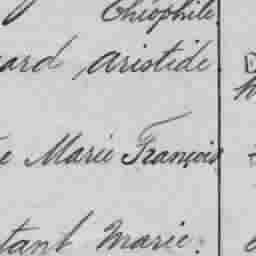 Théophile.
ard Aristide
e Marie François
tant Marie.